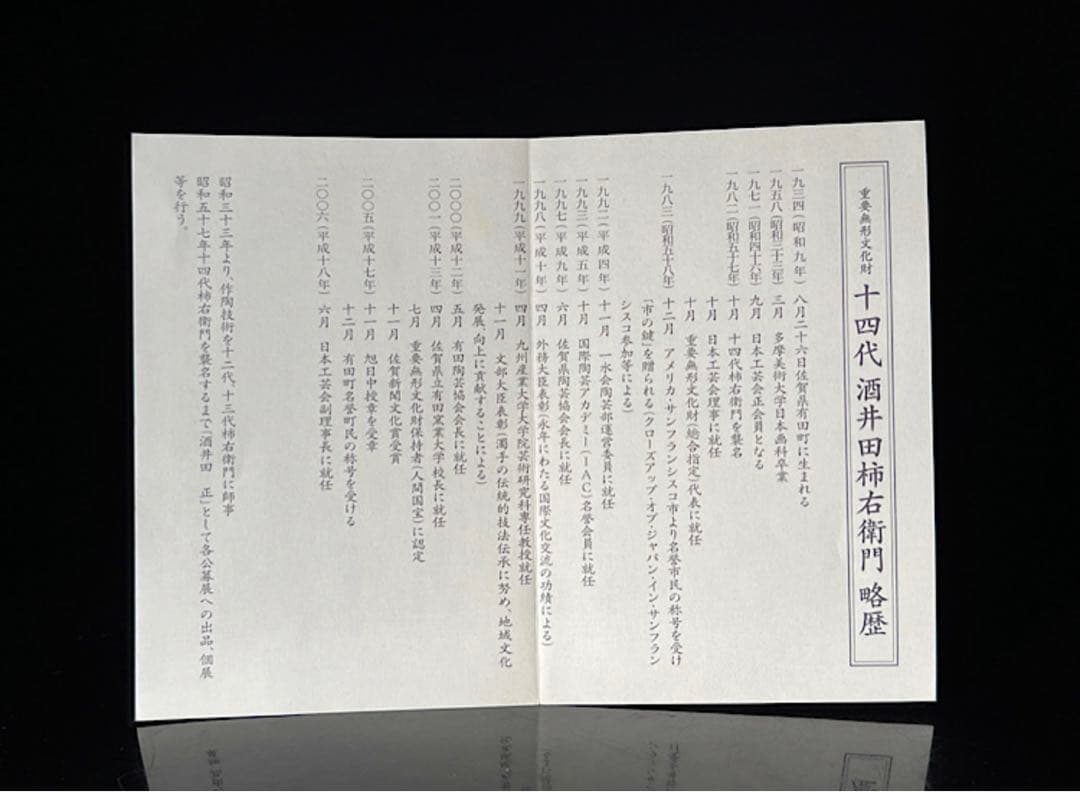 重要無形文化財 十四代 酒井田柿右衛門 略歴
一九三四(昭和九年) 八月二十六日佐賀県有田町に生まれる
一九五八(昭和三十三年) 三月 多摩美術大学日本画科卒業
一九七一(昭和四十六年) 九月 日本工芸会正会員となる
一九八二(昭和五十七年) 十月 十四代柿右衛門を襲名
十月 日本工芸会理事に就任
十月 重要無形文化財(総合指定)代表に就任
一九八三(昭和五十八年) 十二月 アメリカ・サンフランシスコ市より名誉市民の称号を受け
「市の鍵」を贈られる(クローズアップ・オブ・ジャパン・イン・サンフラン
シスコ参加等による)
一九九二(平成四年) 十一月 一水会陶芸部運営委員に就任
一九九三(平成五年) 十月 国際陶芸アカデミー(IAC)名誉会員に就任
一九九七(平成九年) 六月 佐賀県陶芸協会会長に就任
一九九八(平成十年) 四月 外務大臣表彰(永年にわたる国際文化交流の功績による)
一九九九(平成十一年) 四月 九州産業大学大学院芸術研究科専任教授就任
十一月 文部大臣表彰(濁手の伝統的技法伝承に努め、地域文化
発展、向上に貢献することによる)
二〇〇〇(平成十二年) 五月 有田陶芸協会会長に就任
二〇〇一(平成十三年) 四月 佐賀県立有田窯業大学校長に就任
七月 重要無形文化財保持者(人間国宝)に認定
十一月 佐賀新聞文化賞受賞
二〇〇五(平成十七年) 十一月 旭日中授章を受章
十二月 有田町名誉町民の称号を受ける
二〇〇六(平成十八年) 六月 日本工芸会副理事長に就任
昭和三十三年より、作陶技術を十二代、十三代柿右衛門に師事
昭和五十七年十四代柿右衛門を襲名するまで「酒井田 正」として各公募展への出品、個展
等を行う。